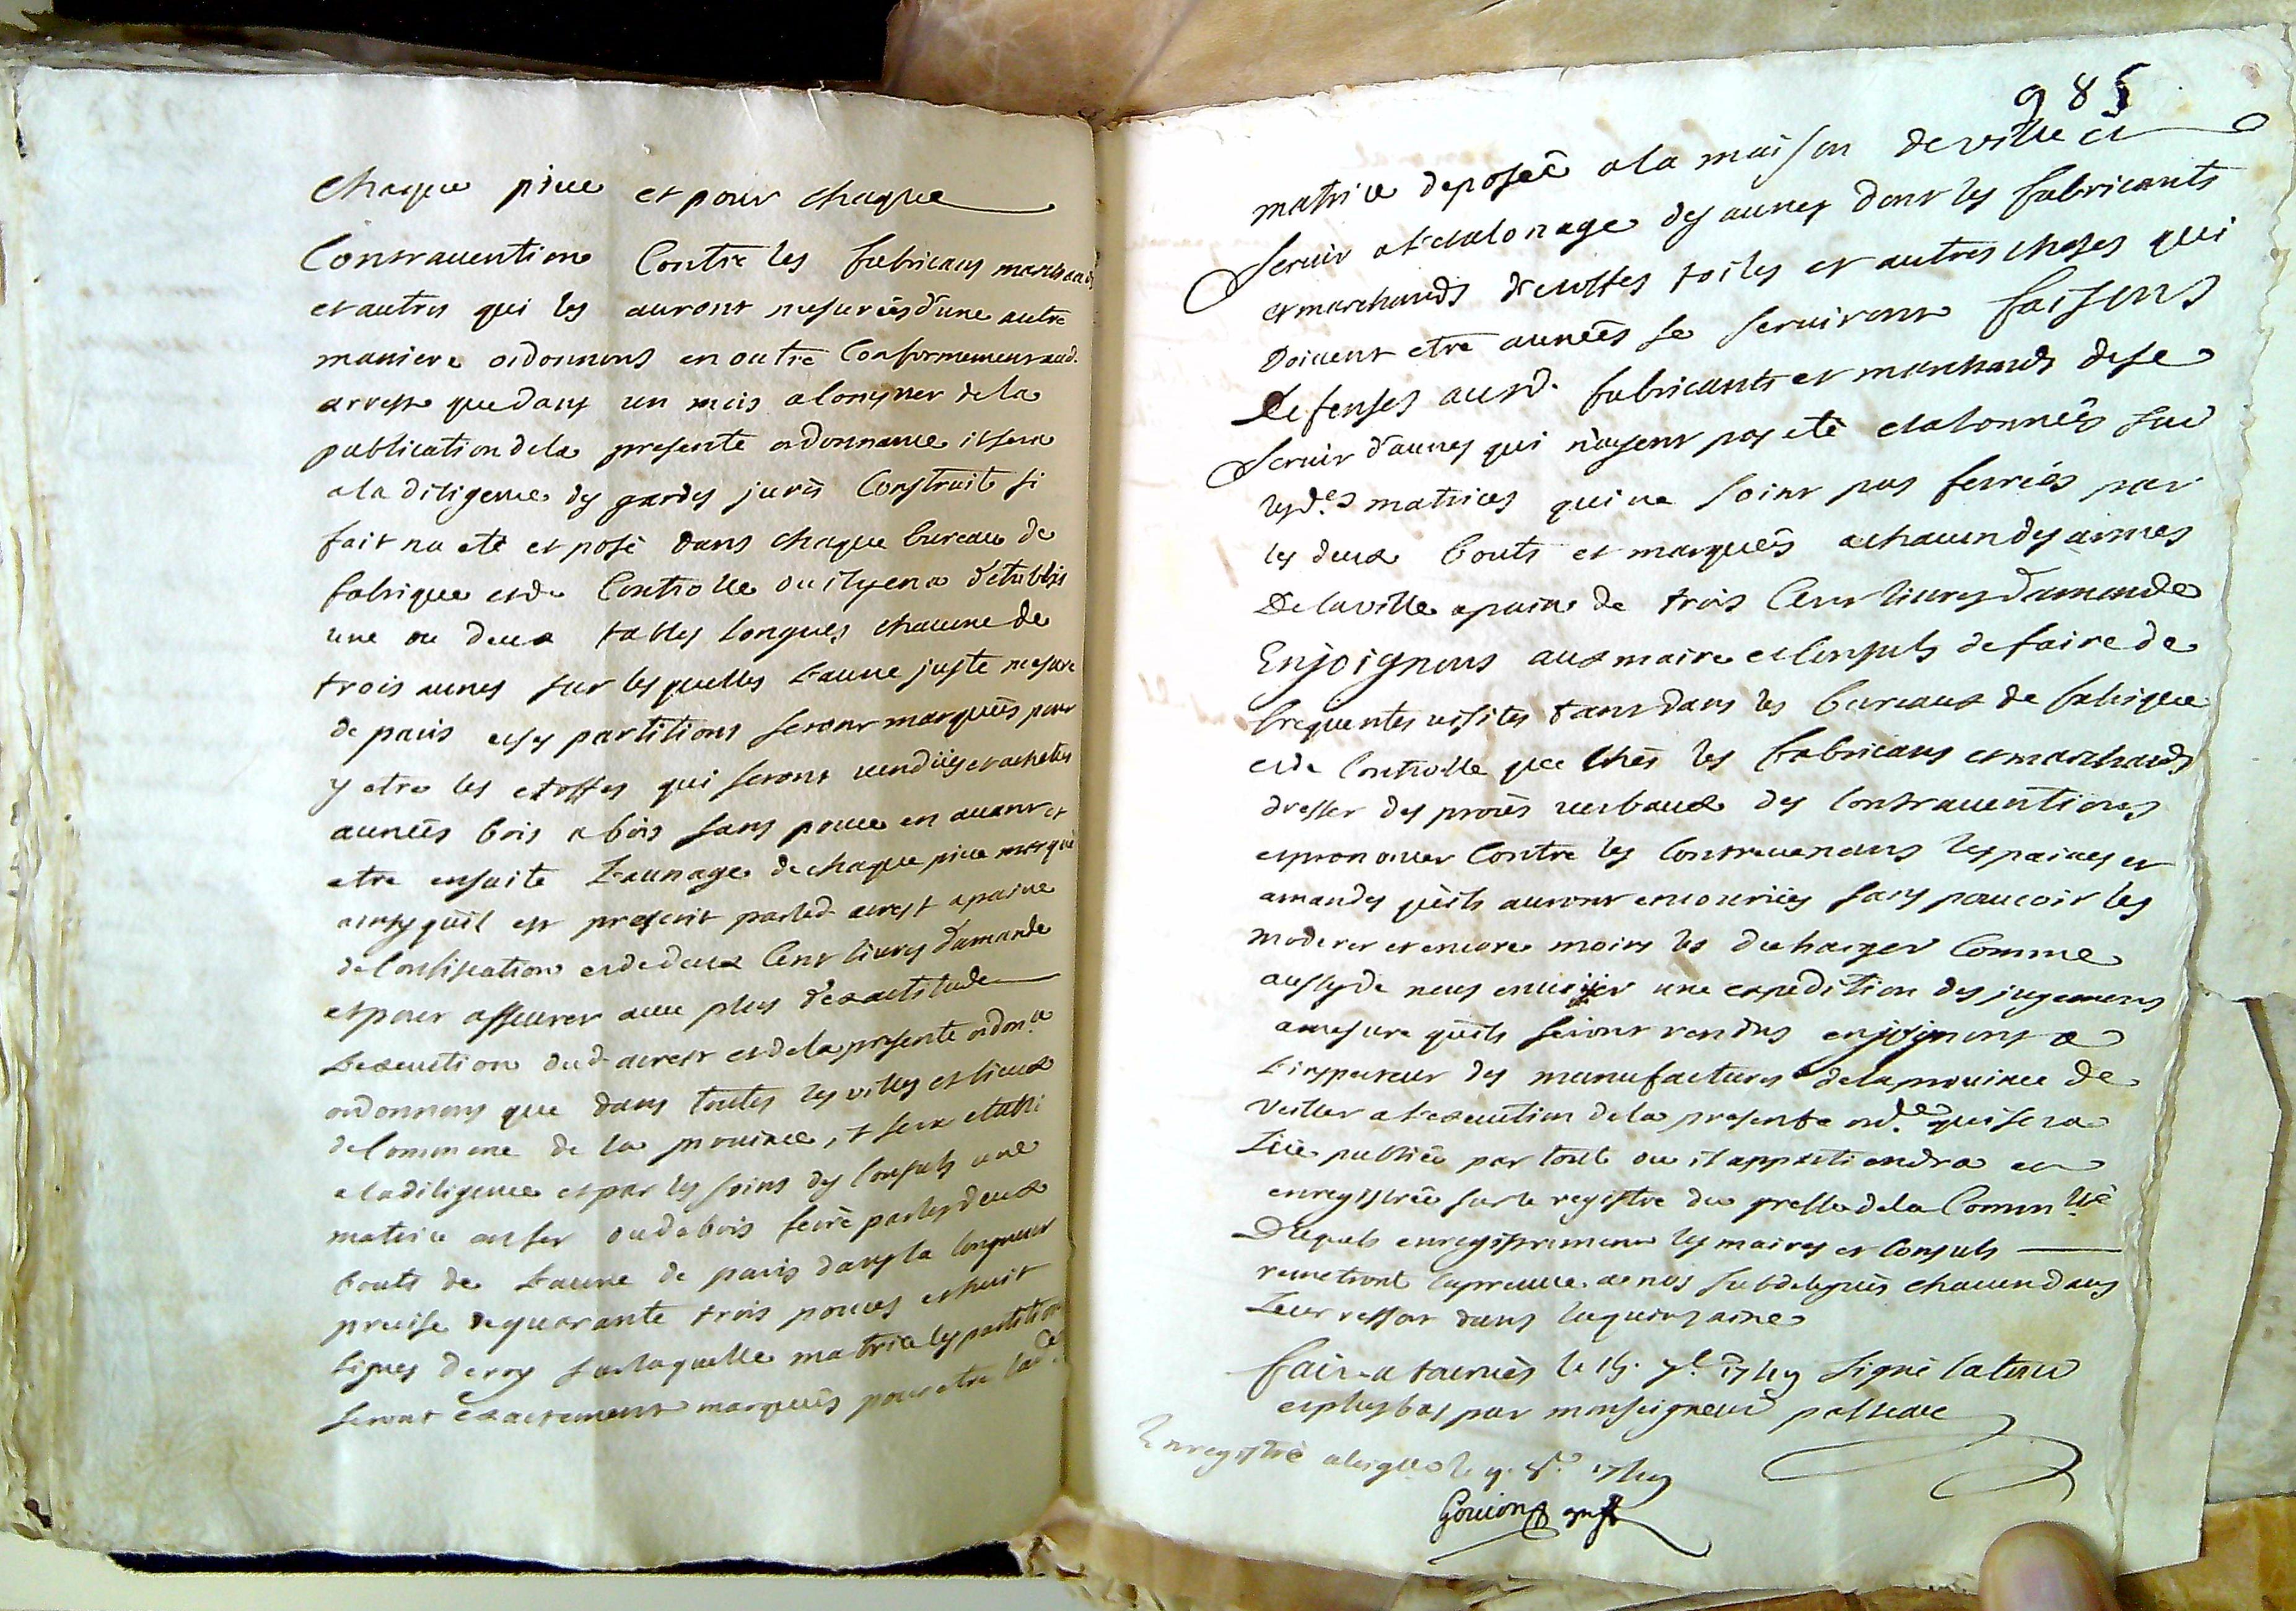 chaque piece et pour chaque
Contrauention Contre les fabricans marchands
et autres qui les auront mesureés d'une autre
maniere ordonnons en outre Conformement aud.
arrest que dans un mois a Compter de la
publication de la presente ordonnance il sera
a la diligence des gardes jurés Construit si
fait na eté et posé dans chaque bureau de
fabrique et de Controlle ou il y en a d'etablis
une ou deux tables longues chacune de
trois aunes sur les quelles L'aune juste mesure
de paris et ses partitions seront marqueés pour
y etre les etoffes qui seront vendües et achetés
aunées bois a bois sans pouce en auant et
etre ensuite L'aunage de chaque piece marqué
ainsy quil est prescrit par led. arrest apaine
de Confiscation et de deux Cent liures d'amande
et pour asseurer auec plus d'exactitude
L'execution dud. arrest et de la presente ordon.ce
ordonnons que dans toutes les villes et lieux
de Commerce de la prouince, il sera etabli
a la diligence et par les soins des Consuls une
matrice en fer ou de bois ferré par les deux
bouts de L'aune de paris dans la longueur
precise de quarante trois pouces et huit
lignes de roy sur laquelle matrice les partitions
seront exactement marqueés pour etre lad.e
985
matrice deposeé a la maison de ville et
Seruir a l'etalonage des aunes dont les fabricants
et marchands d'etoffes toiles et autres choses qui
doiuent etre auneés se seruiront faisons
Defenses ausd. fabricants et marchands de se
Seruir d'aunes qui n'ayent pas eté etalonneés sur
lesd.es matrices qui ne soint pas ferreés par
les deux bouts et marqueés a chacun des armes
De la ville apaine de trois Cent liures d'amande
Enjoignons aux maire et Consuls de faire de
frequentes visites tant dans les bureaux de fabrique
et de Controlle que chés les fabricans et marchands
dresser des procés verbaux des Contrauentions
et prononcer Contre les Contreuenans les paines et
amandes qu'ils auront encouriies sans pouuoir les
moderer et encore moins les decharger Comme
aussy de nous enuoyer une expedition des jugemens
a mesure qu'ils seront rendus enjoignons a
L'inspecteur des manufactures de la prouince de
veiller a l'execution de la presente ord.ce qui sera
Lüe publieé par tout ou il appartiendra et
enregistreé sur le registre du greffe de la Commu.té
Desquels enregistrement les maires et Consuls
remetront la preuue a nos subdelegués chacun dans
Leur ressort dans la quinzaine
fait a le 15. 7.bre 17 signé latour
et plus bas par monseigneur
Enregistré le 9. 8.bre 17
greff